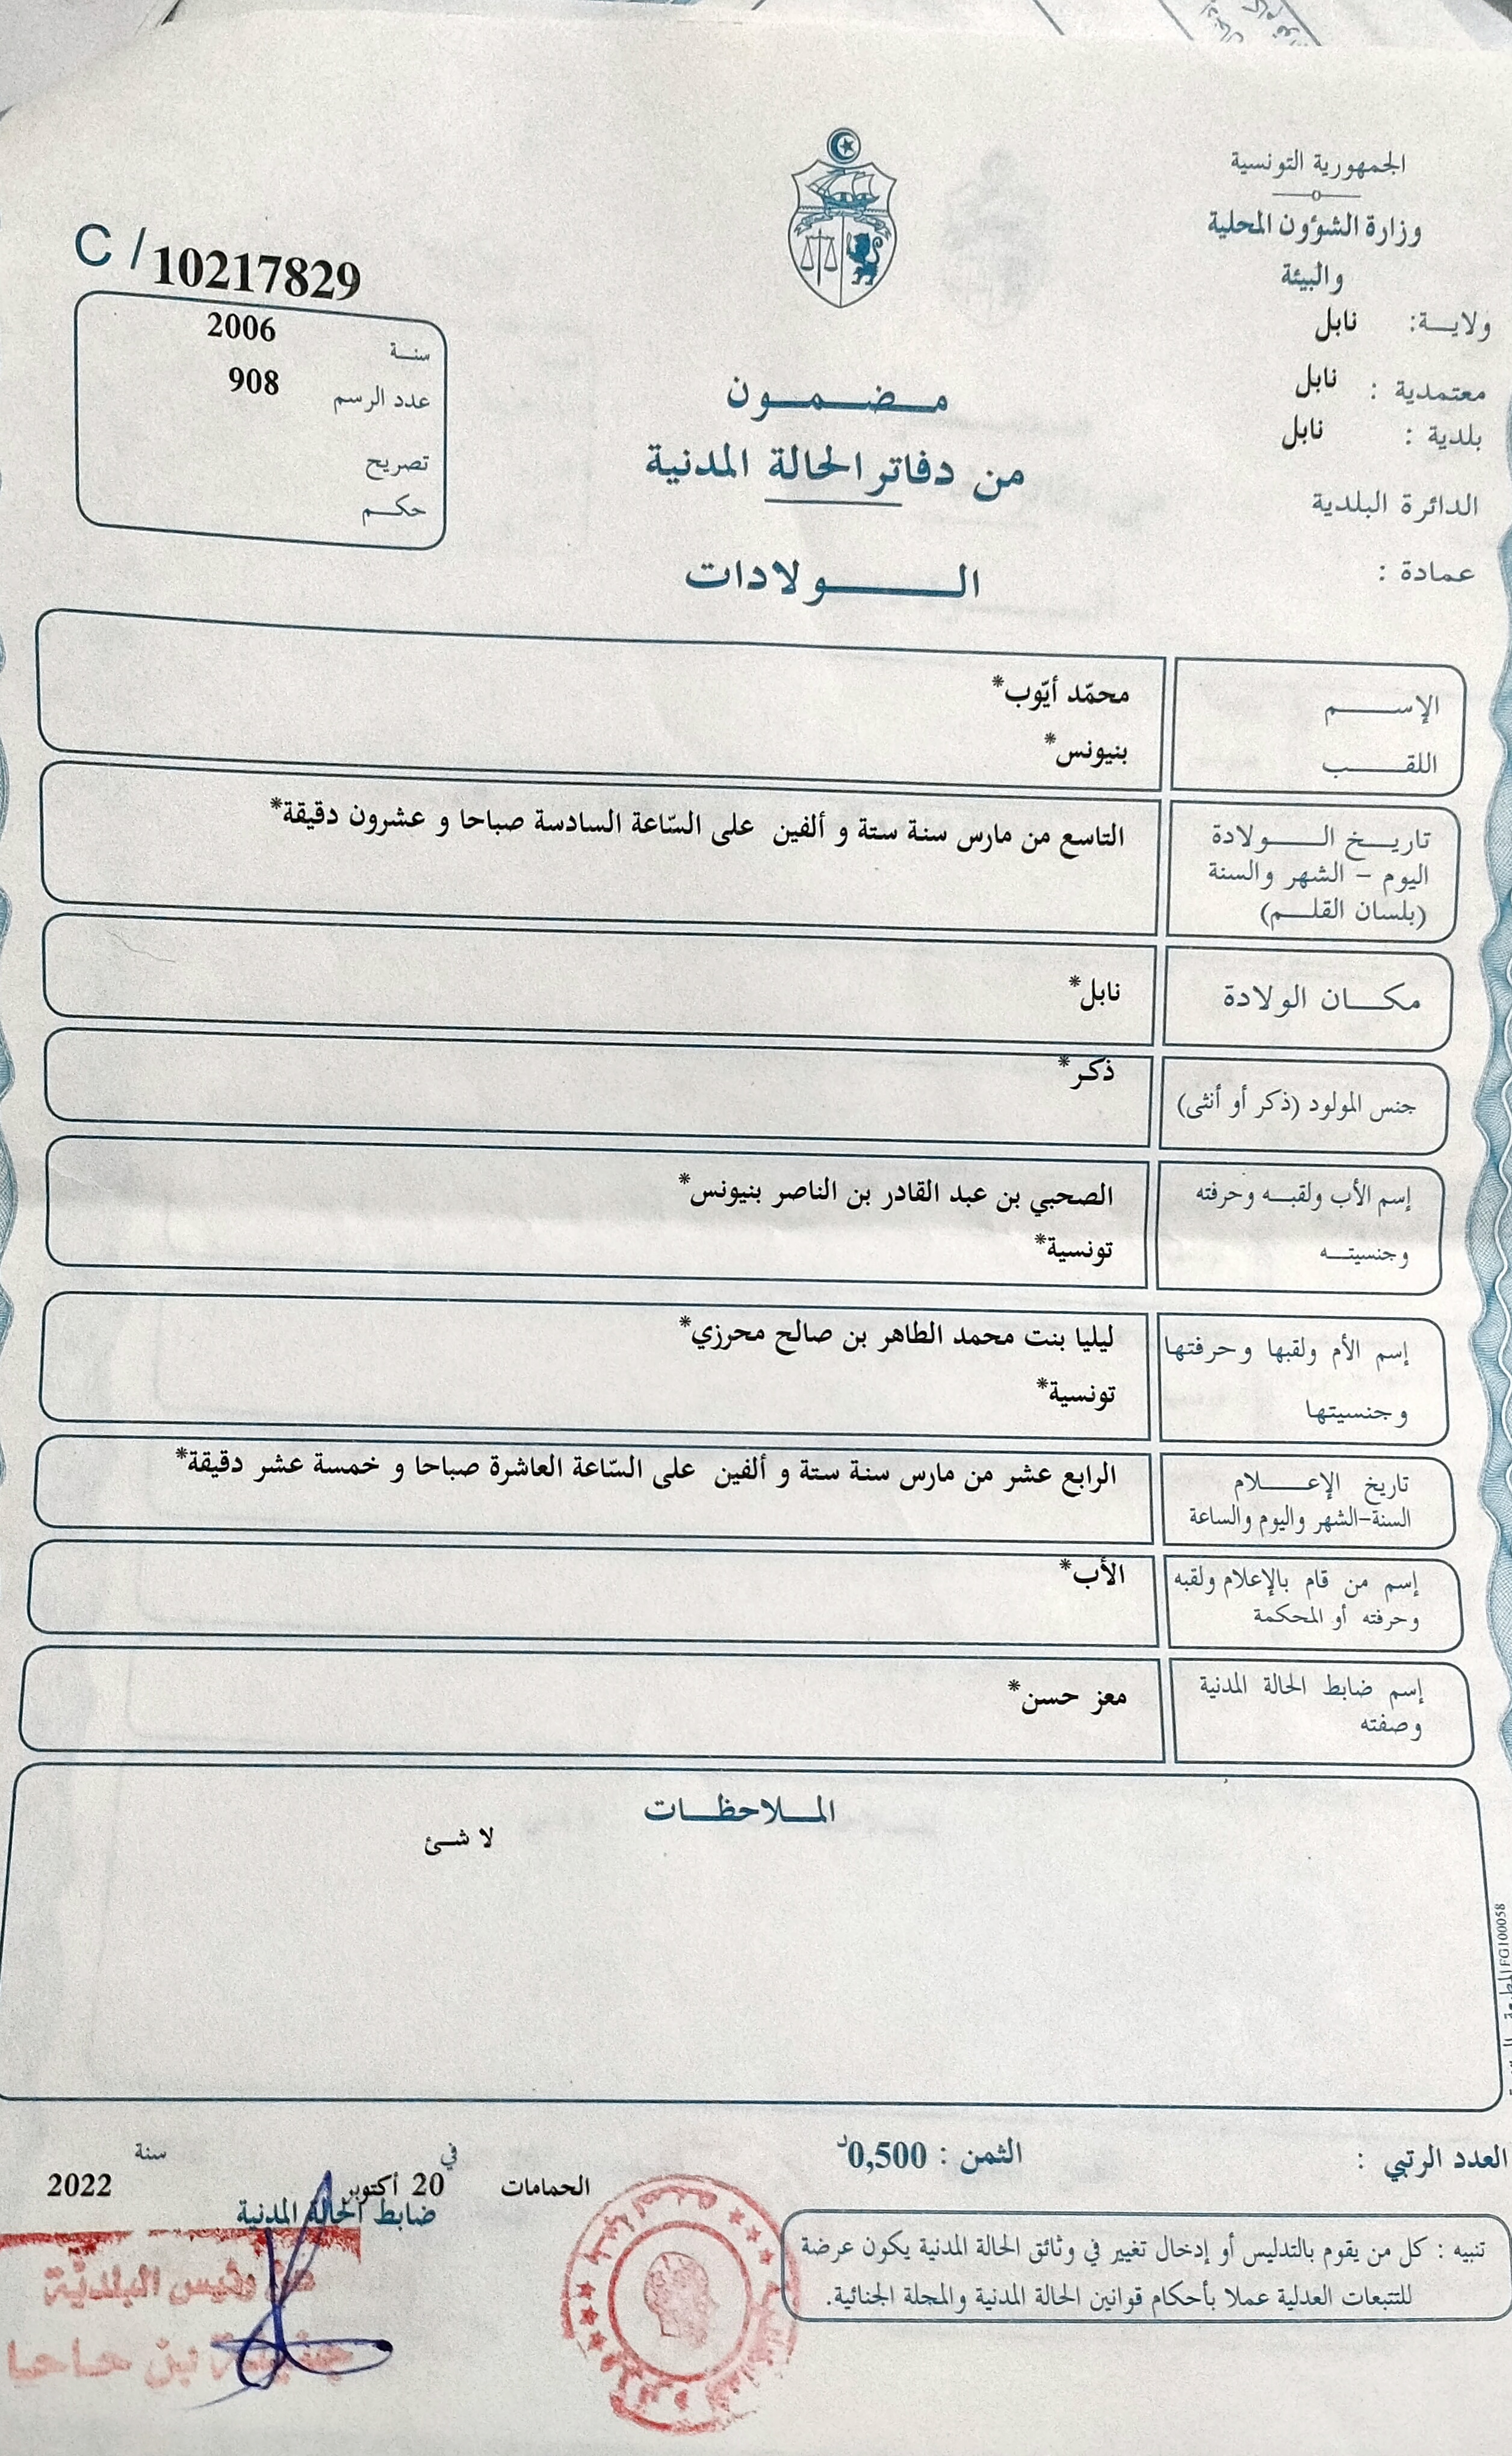 الجمهورية التونسية
وزارة الشؤون المحلية
والبيئة
ولاية: نابل
معتمدية : نابل
بلدية : نابل
الدائرة البلدية
عمادة :
C / 10217829
سنة 2006
عدد الرسم 908
تصريح
حكم
مضمون
من دفاتر الحالة المدنية
الولادات
الإسم محمّد أيّوب*
اللقب بنيونس*
تاريخ الولادة التاسع من مارس سنة ستة و ألفين على السّاعة السادسة صباحا و عشرون دقيقة*
اليوم - الشهر والسنة
(بلسان القلم)
مكان الولادة نابل*
جنس المولود (ذكر أو أنثى) ذكر*
إسم الأب ولقبه وحرفته الصحبي بن عبد القادر بن الناصر بنيونس*
وجنسيته تونسية*
إسم الأم ولقبها وحرفتها ليليا بنت محمد الطاهر بن صالح محرزي*
وجنسيتها تونسية*
تاريخ الإعلام الرابع عشر من مارس سنة ستة و ألفين على السّاعة العاشرة صباحا و خمسة عشر دقيقة*
السنة-الشهر واليوم والساعة
إسم من قام بالإعلام ولقبه الأب*
وحرفته أو المحكمة
إسم ضابط الحالة المدنية معز حسن*
وصفته
الملاحظات
لا شئ
FG100058
العدد الرتبي :
الثمن : 0,500د
الحمامات في 20 أكتوبر سنة 2022
ضابط الحالة المدنية
تنبيه : كل من يقوم بالتدليس أو إدخال تغيير في وثائق الحالة المدنية يكون عرضة
للتتبعات العدلية عملا بأحكام قوانين الحالة المدنية والمجلة الجنائية.
عن رئيس البلديّة
بن حاحا